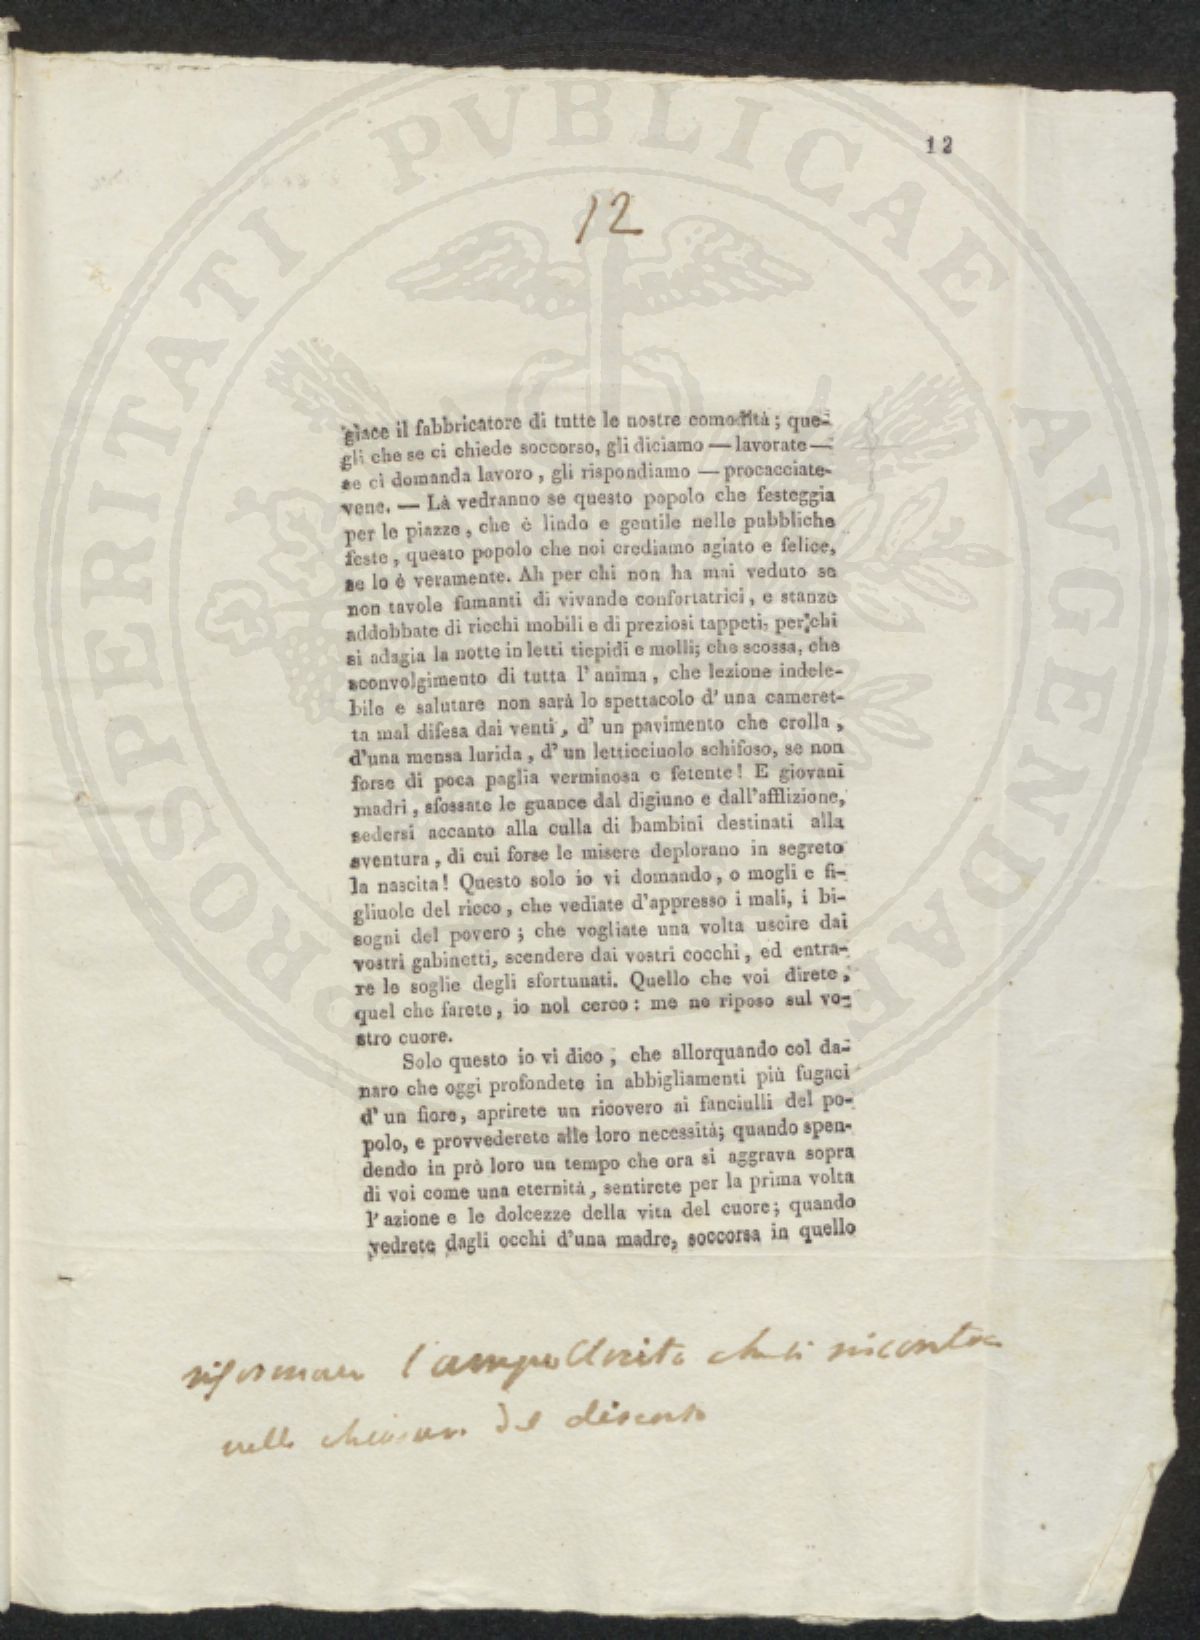 12
12
giace il fabbricatore di tutte le nostre comodità; que-
gli che se ci chiede soccorso, gli diciamo — lavorate —
se ci domanda lavoro, gli rispondiamo — procacciate-
vene. — Là vedranno se questo popolo che festeggia
per le piazze, che è lindo e gentile nelle pubbliche
feste, questo popolo che noi crediamo agiato e felice,
se lo è veramente. Ah per chi non ha mai veduto se
non tavole fumanti di vivande confortatrici, e stanze
addobbate di ricchi mobili e di preziosi tappeti, per chi
si adagia la notte in letti tiepidi e molli; che scossa, che
sconvolgimento di tutta l'anima, che lezione indele-
bile e salutare non sarà lo spettacolo d'una cameret-
ta mal difesa dai venti, d'un pavimento che crolla,
d'una mensa lurida, d'un letticciuolo schifoso, se non
forse di poca paglia verminosa e fetente! E giovani
madri, sfossate le guance dal digiuno e dall'afflizione,
sedersi accanto alla culla di bambini destinati alla
sventura, di cui forse le misere deplorano in segreto
la nascita! Questo solo io vi domando, o mogli e fi-
gliuole del ricco, che vediate d'appresso i mali, i bi-
sogni del povero; che vogliate una volta uscire dai
vostri gabinetti, scendere dai vostri cocchi, ed entra-
re le soglie degli sfortunati. Quello che voi direte,
quel che farete, io nol cerco: me ne riposo sul vo-
stro cuore.
Solo questo io vi dico, che allorquando col da-
naro che oggi profondete in abbigliamenti più fugaci
d'un fiore, aprirete un ricovero ai fanciulli del po-
polo, e provvederete alle loro necessità; quando spen-
dendo in prò loro un tempo che ora si aggrava sopra
di voi come una eternità, sentirete per la prima volta
l'azione e le dolcezze della vita del cuore; quando
vedrete dagli occhi d'una madre, soccorsa in quello
l'ampollosità che si riscontra
nella del discorso
PROSPERITATI PVBLICAE AVGENDAE